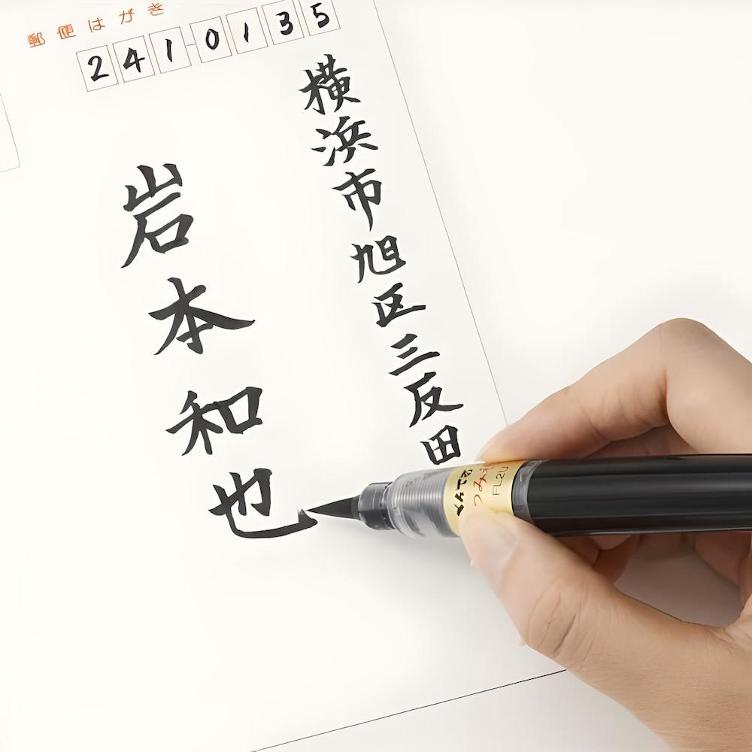 郵便はがき
2410135
横浜市旭区三反田
岩本和也
FL2U